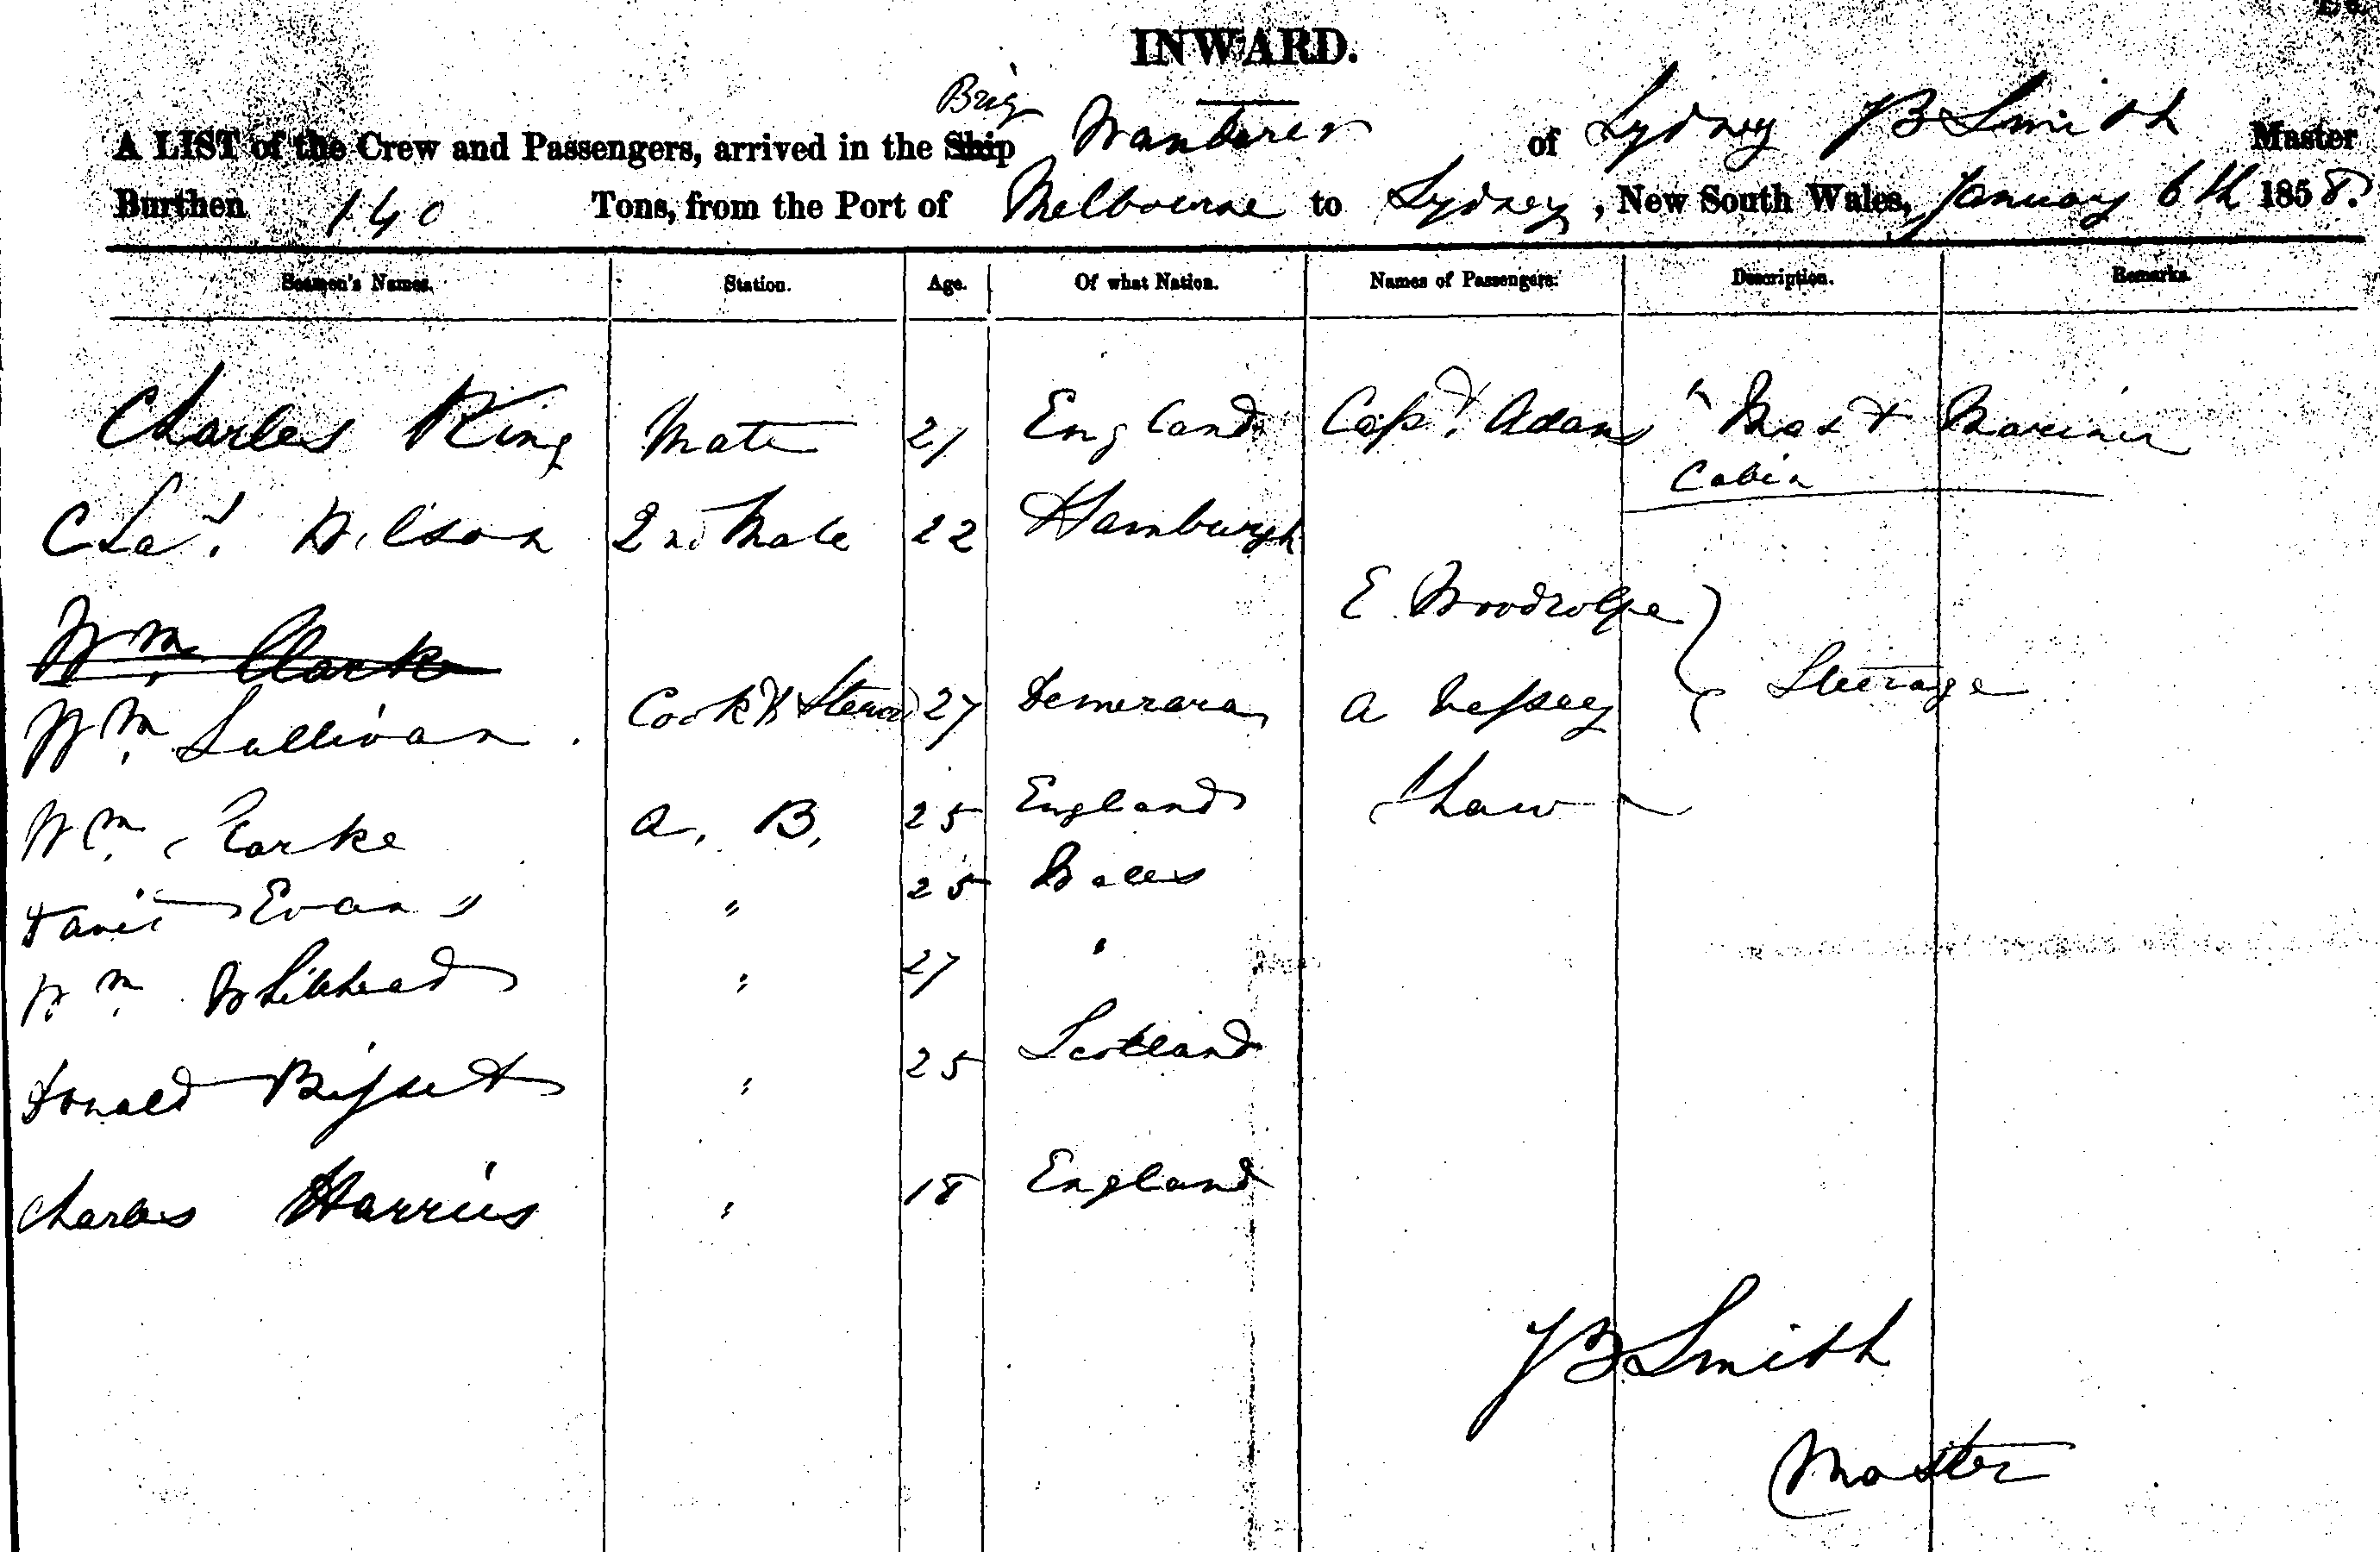 INWARD.
Brig
A LIST of the Crew and Passengers, arrived in the Ship Wanderer of Sydney JB Smith Master
Burthen 140 Tons, from the Port of Melbourne to Sydney, New South Wales, January 6th 1858.
Seamen's Names. Station. Age. Of what Nation. Names of Passengers. Description. Remarks.
Charles King Mate 21 England Capt. Adams Mast Mariner
Cabin
Chas. Wilson 2nd Mate 22 Hamburgh
E. Woodrolfe
Wm. Clarke
Wm. Sullivan Cook & Steward 27 Demerara A Steerage
Wm. Clarke A. B. 25 England Shaw
David Evans " 25 Wales
Wm. Whitehead " 27 "
Donald Bisset " 25 Scotland
Charles Harris " 18 England
JB Smith
Master